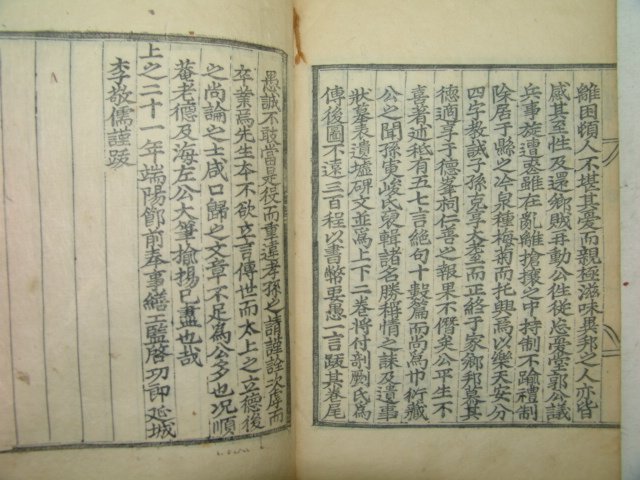 離困頓人不堪其憂而親極滋味異邦之人亦皆
感其至性及還鄉賊再動公往從忘憂堂郭公議
兵事旋遭喪雖在亂離搶攘之中持制不踰禮制
除居于縣之冷泉種梅菊而托興焉以樂天安分
四字教誡子孫克享大耋而正終于家鄉邦慕其
德適享于德峯祠仁善之報果不僭矣公平生不
喜著述秪有五七言絶句十數篇而尚爲巾衍藏
公之聞孫東峻氏裒輯諸名勝稱情之誄及遺事
狀墓表遺墟碑文並爲上下二卷將付剞劂氏爲
傳後圖不遠三百程以書幣要愚一言跋其卷尾
愚誠不敢當是役而重違孝孫之請謹詮次庫而
卒業焉先生本不欲立言傳世而太上之立德後
之尚論之士咸口歸之文章不足爲公多也况順
菴老德及海左公大筆揄揚已盡也哉
上之二十一年端陽節前奉事繕工監啓功郎延城
李敬儒謹跋